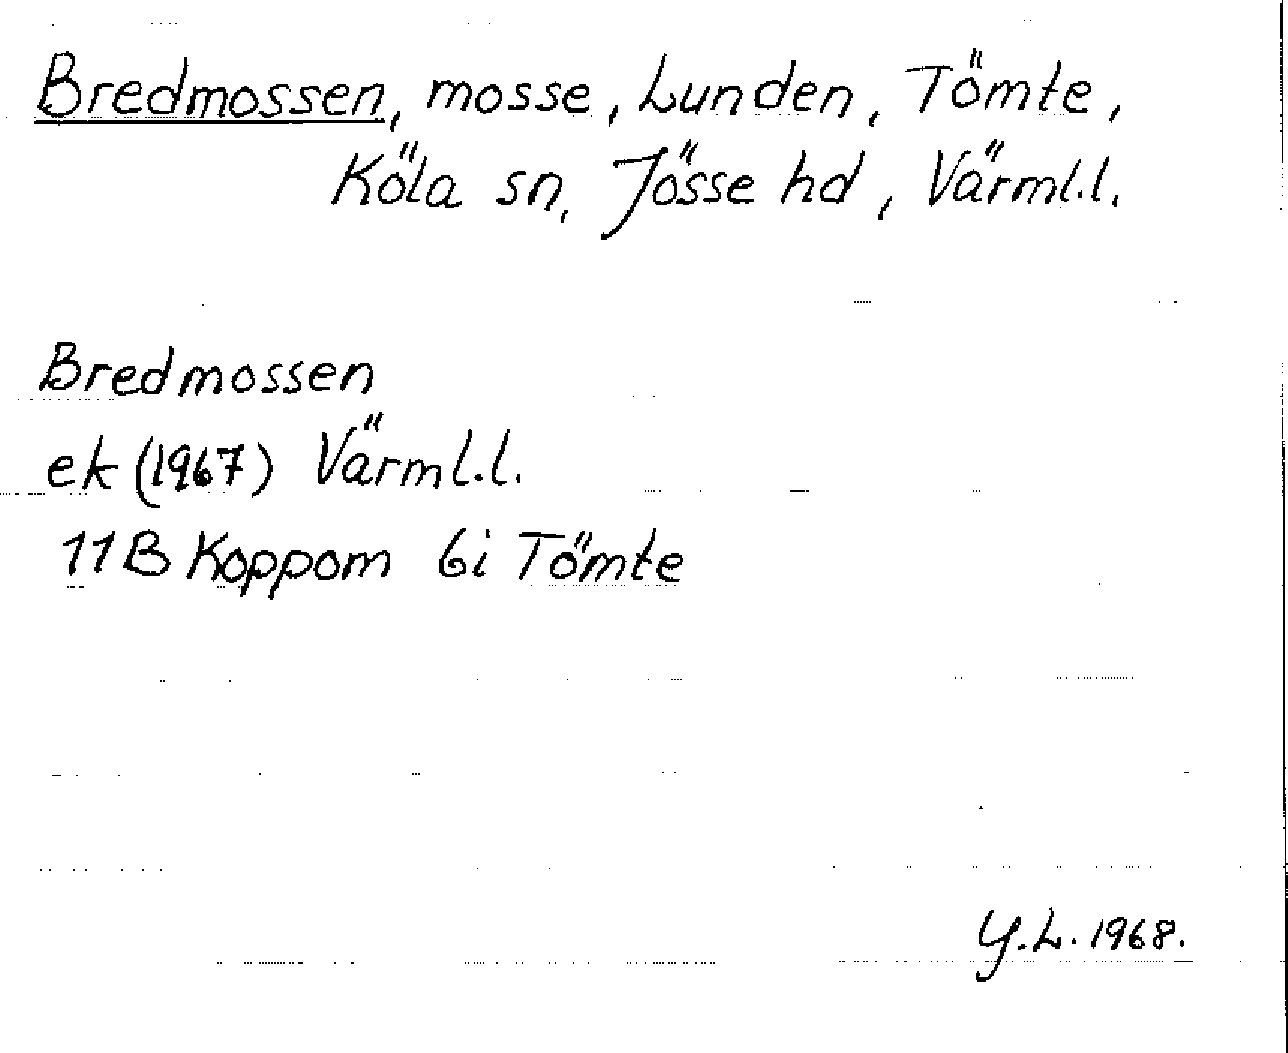 Bredmossen, mosse, Lunden, Tömte,
Köla sn, Jösse hd, Värml.l.
Bredmossen
ek (1967) Värml.l.
11B Koppom 6i Tömte
Y.L. 1968.